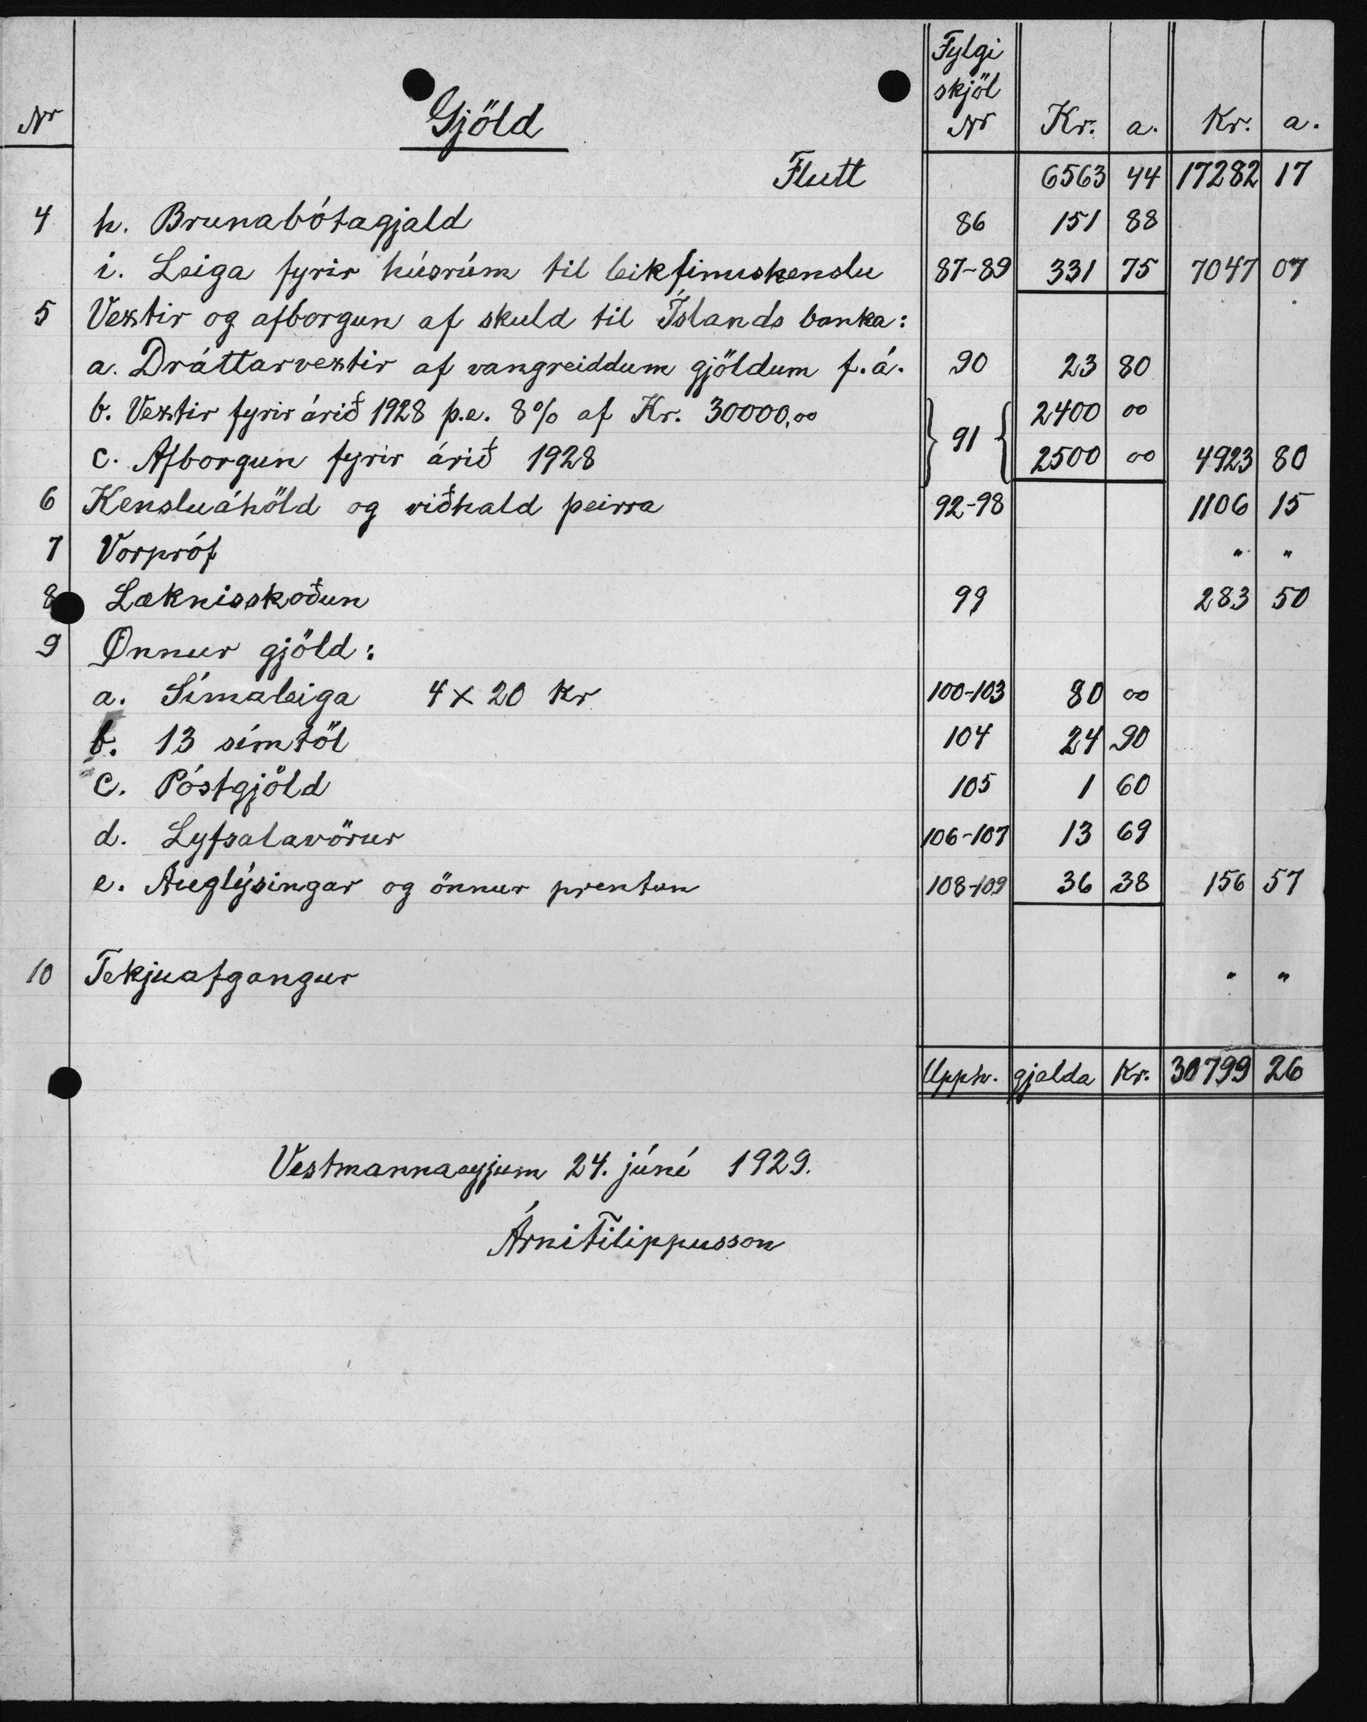 Fylgi
skjöl
Nr Gjöld Nr Kr. a. Kr. a.
Flutt 6563 44 17282 17
4 h. Brunabótagjald 86 151 88
i. Leiga fyrir húsrúm til leikfimiskenslu 87-89 331 75 7047 07
5 Vextir og afborgun af skuld til Íslands banka:
a. Dráttarvextir af vangreiddum gjöldum f.á. 90 23 80
b. Vextir fyrir árið 1928 þ.e. 8% af Kr. 30000,00 } 91 { 2400 00
c. Afborgun fyrir árið 1928 2500 00 4923 80
6 Kensluáhöld og viðhald þeirra 92-98 1106 15
7 Vorpróf " "
8 Læknisskoðun 99 283 50
9 Önnur gjöld:
a. Símaleiga 4 x 20 Kr 100-103 80 00
b. 13 símtöl 104 24 90
c. Póstgjöld 105 1 60
d. Lyfsalavörur 106-107 13 69
e. Auglýsingar og önnur prentun 108-109 36 38 156 57
10 Tekjuafgangur " "
Upph. gjalda Kr. 30799 26
Vestmannaeyjum 24. júní 1929.
Árni Filippusson